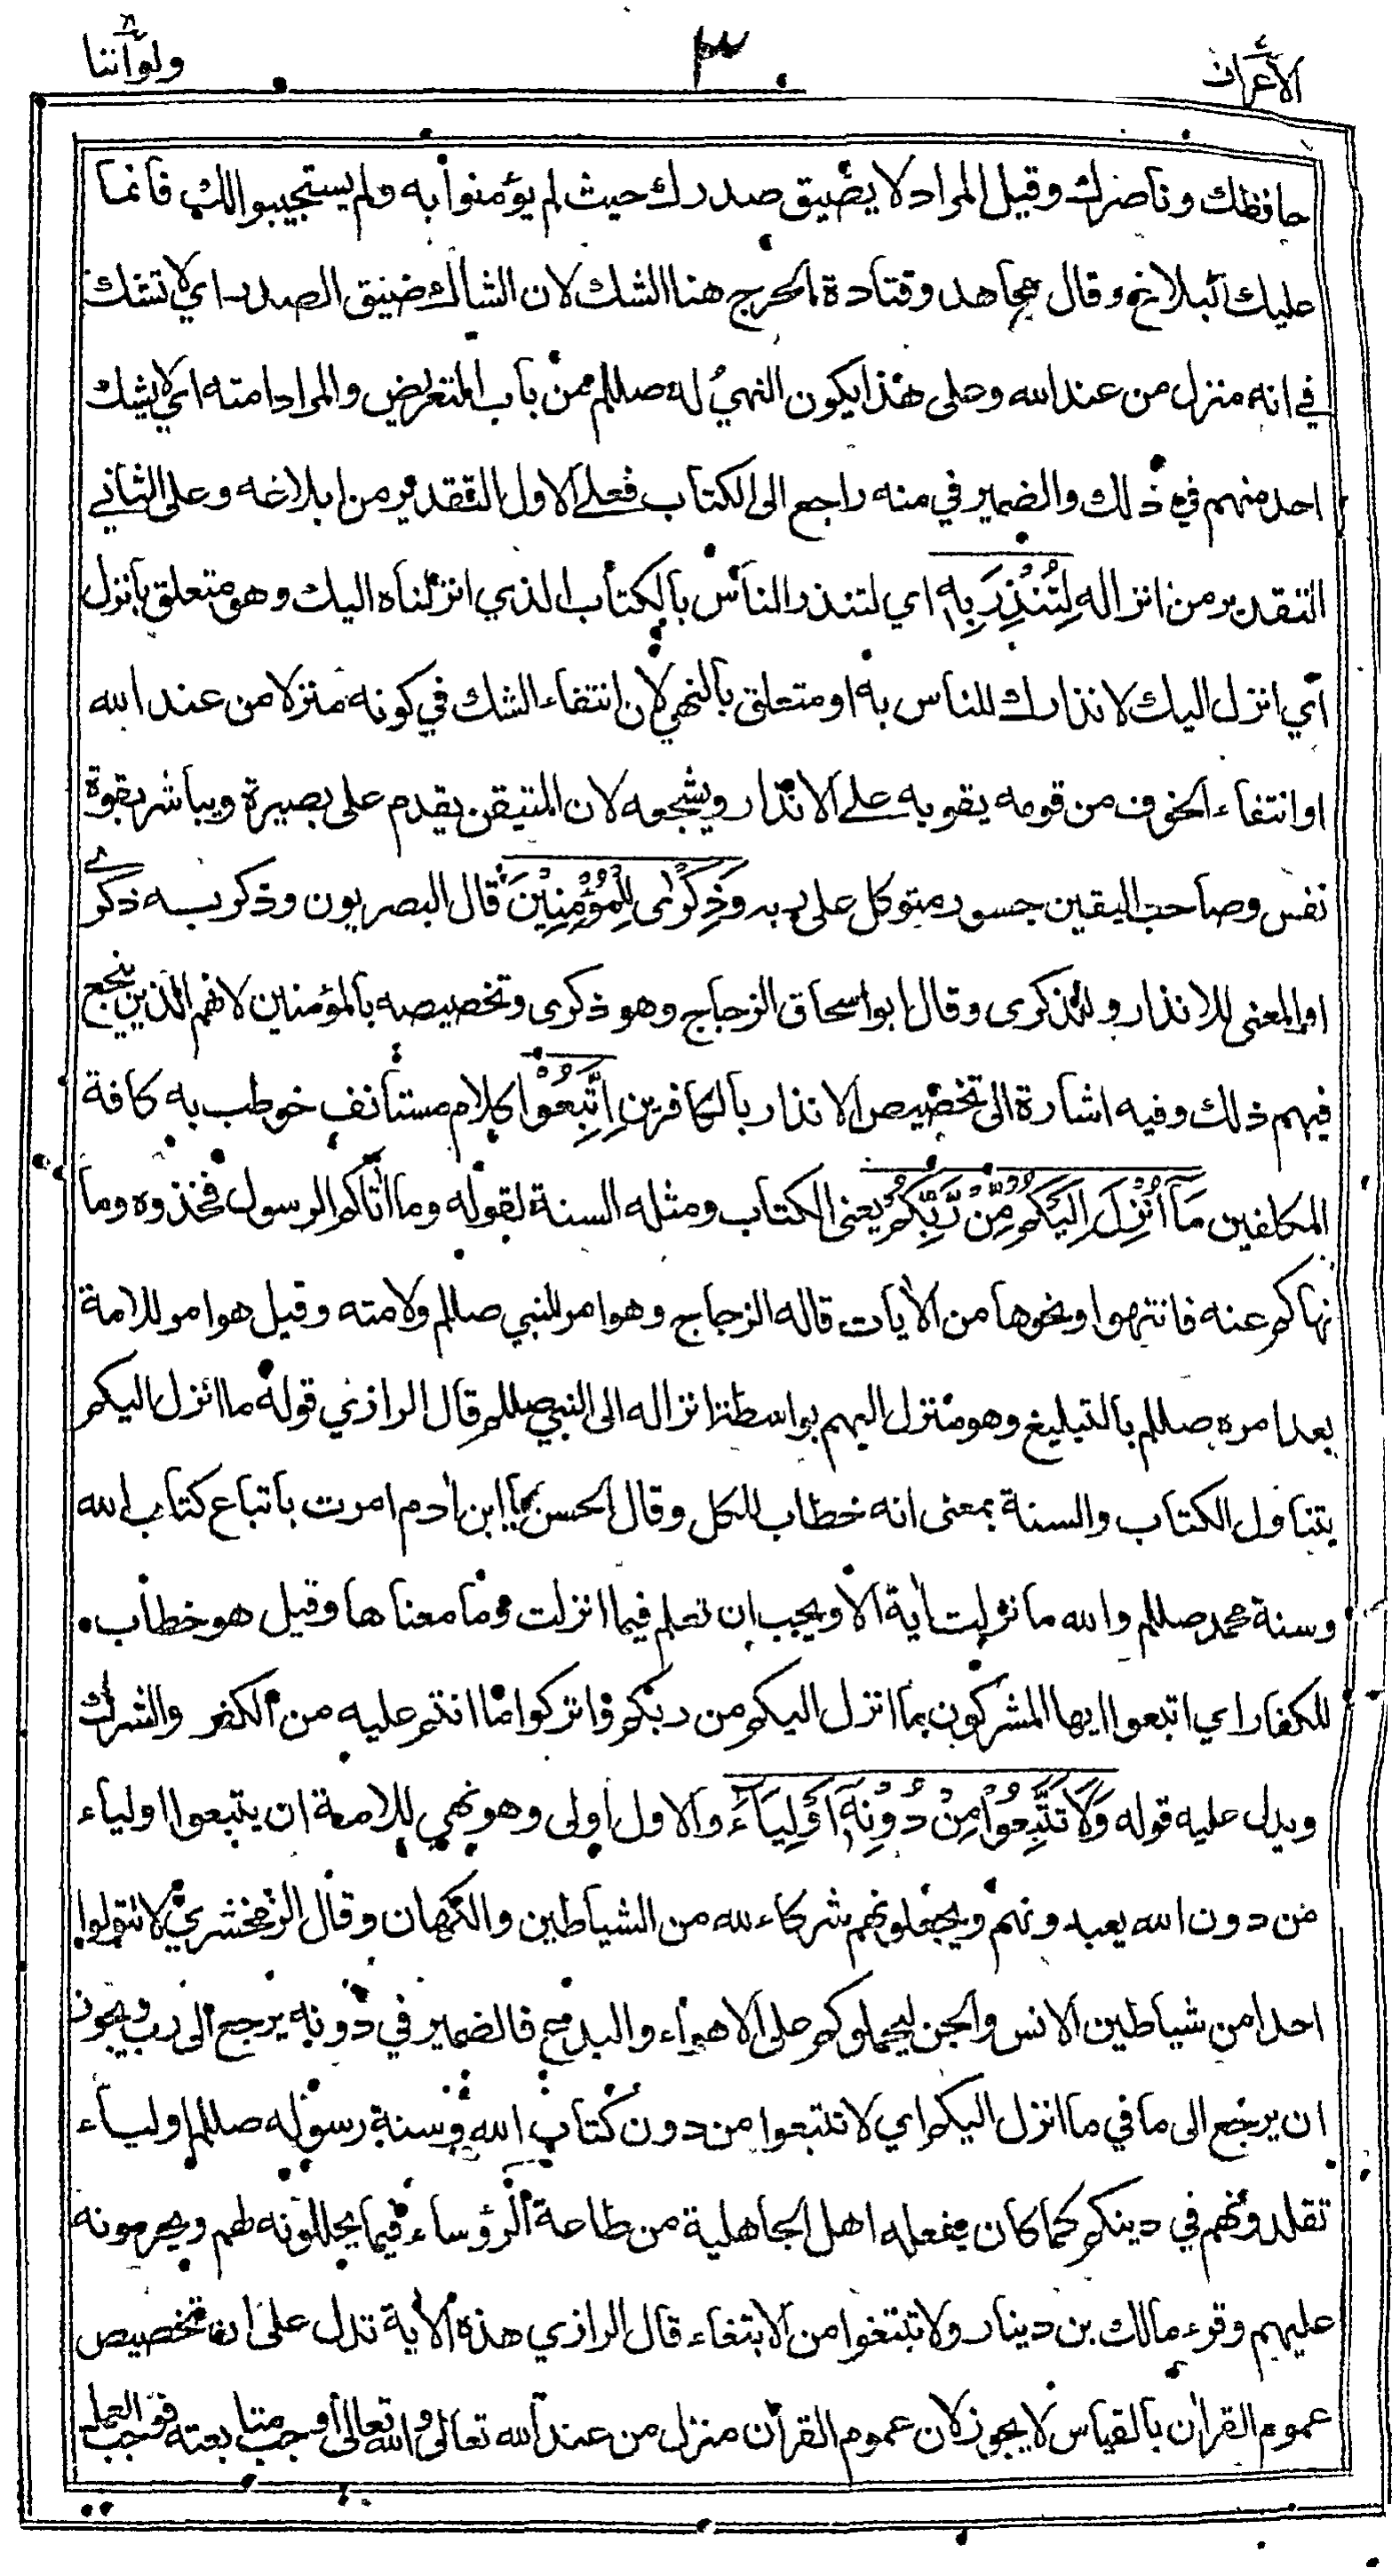 الأعراف
٣
ولو أننا
حافظك وناصرك وقيل المراد لا يضيق صدرك حيث لم يؤمنوا به ولم يستجيبوا لك فانما
عليك البلاغ وقال مجاهد وقتادة الحرج هنا الشك لان الشاك ضيق الصدر اي لا تشك
في انه منزل من عند الله وعلى هذا يكون النهي له صللم من باب التعريض والمراد امته اي لا يشك
احد منهم في ذلك والضمير في منه راجع الى الكتاب فعلى الاول التقدير من ابلاغه وعلى الثاني
التقدير من انزاله لِتُنْذِرَ بِهٖ اي لتنذر الناس بالكتاب الذي انزلناه اليك وهو متعلق بانزل
أي انزل اليك لانذارك للناس به او متعلق بالنهي لان انتفاء الشك في كونه منزلا من عند الله
او انتفاء الخوف من قومه يقويه على الانذار ويشجعه لان المتيقن يقدم على بصيرة ويباشر بقوة
نفس وصاحب اليقين جسور متوكل على ربه وَذِكْرٰى لِلْمُؤْمِنِيْنَ قال البصريون وذكر به ذكرى
او المعنى للانذار وللذكرى وقال ابو اسحاق الزجاج وهو ذكرى وتخصيصه بالمؤمنين لانهم الذين ينجع
فيهم ذلك وفيه اشارة الى تخصيص الانذار بالكافرين اِتَّبِعُوْا كلام مستأنف خوطب به كافة
المكلفين مَآ اُنْزِلَ اِلَيْكُمْ مِّنْ رَّبِّكُمْ يعني الكتاب ومثله السنة لقوله وما اٰتاكم الرسول فخذوه وما
نهاكم عنه فانتهوا ونحوها من الاٰيات قاله الزجاج وهو امر للنبي صللم ولامته وقيل هو امر للامة
بعد امره صللم بالتبليغ وهو منزل اليهم بواسطة انزاله الى النبي صللم قال الرازي قوله ما انزل اليكم
يتناول الكتاب والسنة بمعنى انه خطاب للكل وقال الحسن يا ابن اٰدم امرت باتباع كتاب الله
وسنة محمد صللم والله ما نزلت اٰية الا ويجب ان تعلم فيما انزلت وما معناها وقيل هو خطاب
للكفار اي اتبعوا ايها المشركون ما انزل اليكم من ربكم واتركوا ما انتم عليه من الكفر والشرك
ويدل عليه قوله وَلَا تَتَّبِعُوْا مِنْ دُوْنِهٖٓ اَوْلِيَآءَ والاول اولى وهو نهي للامة ان يتبعوا اولياء
من دون الله يعبدونهم ويجعلونهم شركاء لله من الشياطين والكهان وقال الزمخشري لا تتولوا
احدا من شياطين الانس والجن ليحملوكم على الاهواء والبدع فالضمير في دونه يرجع الى رب ويجوز
ان يرجع الى ما في ما انزل اليكم اي لا تتبعوا من دون كتاب الله وسنة رسوله صللم اولياء
تقلدونهم في دينكم كما كان يفعله اهل الجاهلية من طاعة الرؤساء فيما يحللونه لهم ويحرمونه
عليهم وقرء مالك بن دينار ولا تبتغوا من الابتغاء قال الرازي هذه الاٰية تدل على ان تخصيص
عموم القراٰن بالقياس لا يجوز لان عموم القراٰن منزل من عند الله تعالى والله تعالى أوجب متابعته فوجب العمل